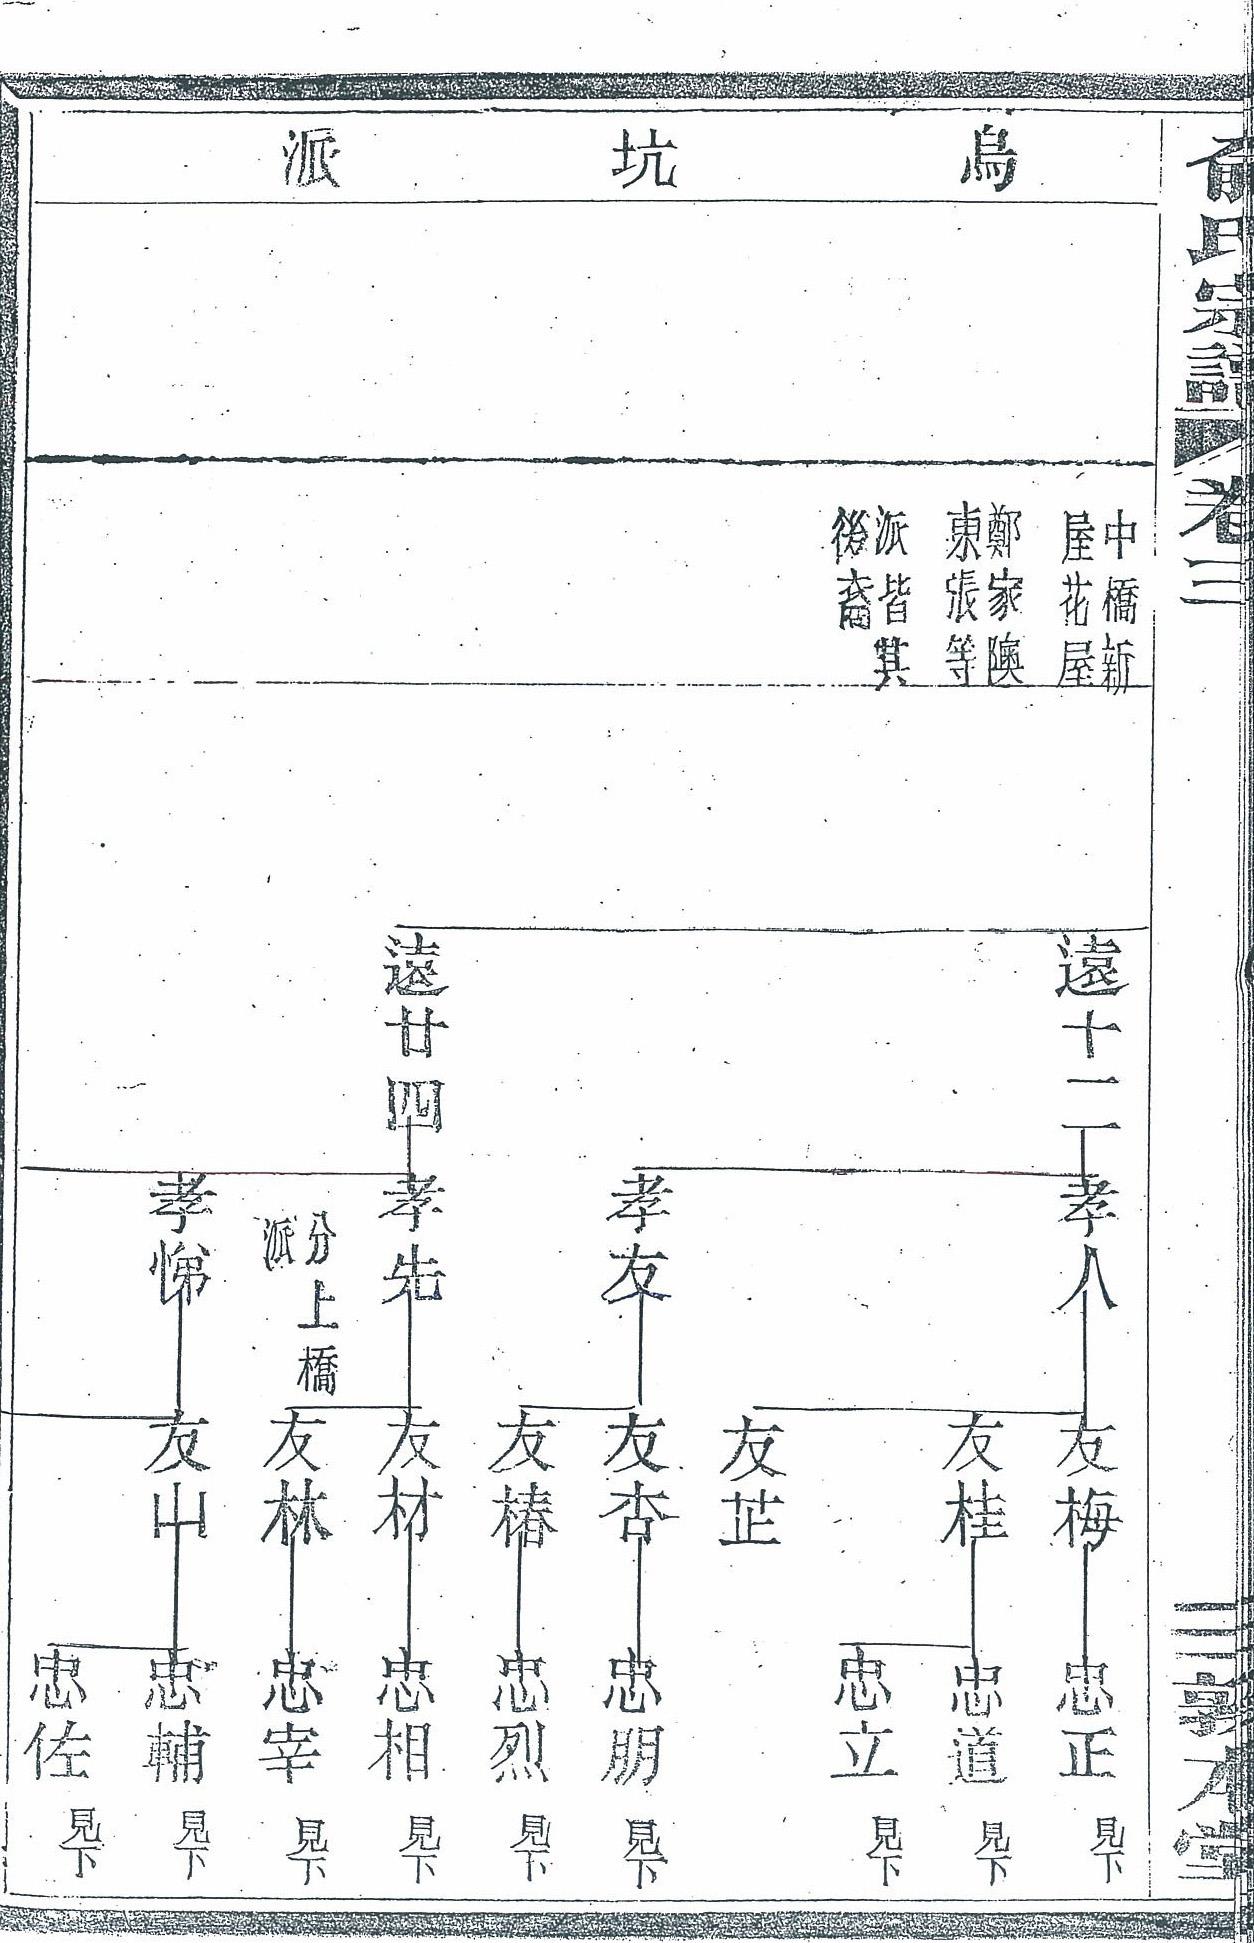 俞氏宗譜
卷三
三
敦本堂
烏坑派
中橋新
屋花屋
鄭家隩
東張等
派皆其
後裔
遠十二
遠廿四
孝八
孝友
孝先
分上橋
派
孝悌
友梅
友桂
友芷
友杏
友椿
友材
友林
友山
忠正 見下
忠道 見下
忠立 見下
忠朋 見下
忠烈 見下
忠相 見下
忠宰 見下
忠輔 見下
忠佐 見下